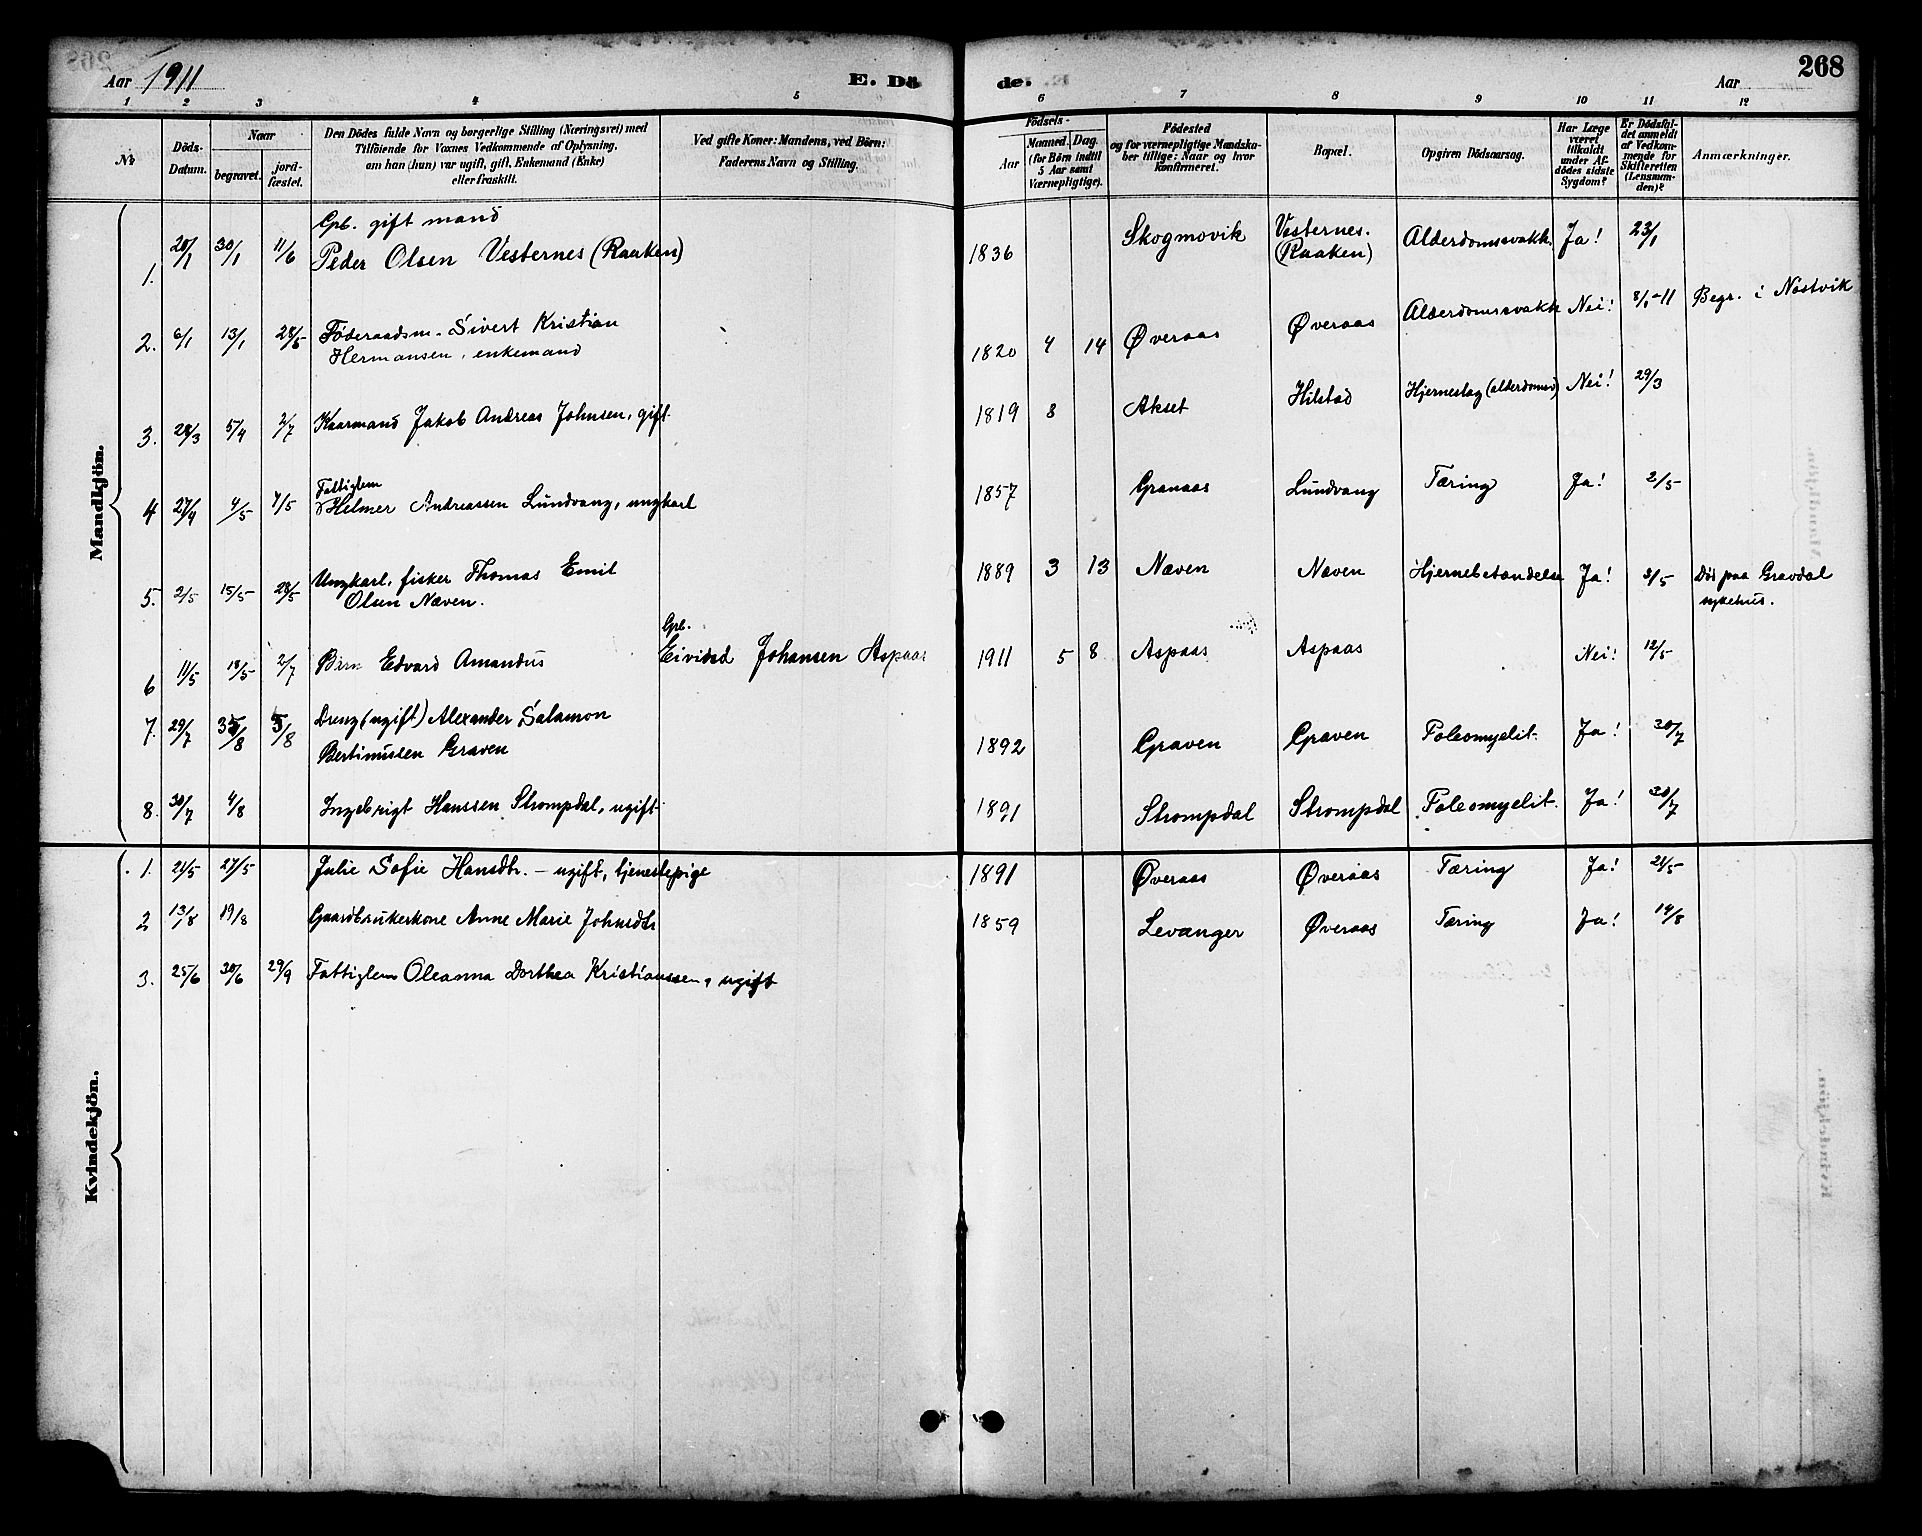 Aar 1911
E. Dö
de.
Aar
268
1 2 3 4 5 6 7 8 9 10 11 12
No
Döds-
Datum.
Naar
begravet.
jord-
fæstet.
Den Dödes fulde Navn og borgerlige Stilling (Næringsvei) med
Tilföiende for Voxnes Vedkommende af Oplysning,
om han (hun) var ugift, gift, Enkemand (Enke)
eller fraskilt.
Ved gifte Koner: Mandens, ved Börn:
Faderens Navn og Stilling.
Födsels-
Aar
Maaned. Dag.
(for Börn indtil
5 Aar samt
Værnepligtige).
Födested
og for værnepligtige Mandska-
ber tillige: Naar og hvor
konfirmeret.
Bopæl.
Opgiven Dödsaarsag.
Har Læge
været
tilkaldt
under Af-
dödes sidste
Sygdom?
Er Dödsfal-
det anmeldt
af Vedkom-
mende for
Skifteretten
(Lensman-
den)?
Anmærkninger.
Mandkjön.
Gpb. gift mand
1. 20/1 30/1 11/6 Peder Olsen Vesternes (Raaken) 1836 Skogmovik Vesternes. (Raaken) Alderdomssvakh. Ja! 23/1
2. 6/1 13/1 28/5 Föderaadsm. Sivert Kristian
Hermansen, enkemand 1820 4 14 Øveraas Øveraas Alderdomssvakh Nei! 8/1-11 Begr. i Nostvik
3. 28/3 5/4 2/7 Kaarmand Jakob Andreas Johnsen, gift. 1819 8 Akset Hilstad Hjerneslag (alderdomsd) Nei! 29/3
Fattiglem
4 27/4 4/5 7/5 Helmer Andreassen Lundvang, ungkarl 1857 Granaas Lundvang Tæring Ja! 2/5
5. 2/5 15/5 28/5 Ungkarl, fisker Thomas Emil
Olsen Næven. 1889 3 13 Næven Næven Hjernebetændelse Ja! 3/5 Död paa Gravdal
sykehus.
Gpb.
6 11/5 18/5 2/7 Barn Edvard Amandus Eividsd Johansen Aspaas 1911 5 8 Aspaas Aspaas Nei! 12/5
7. 29/7 5/8 Dreng (ugift) Alexander Salamon
Bertinussen Graven 1892 Graven Graven Poleomyelit. Ja! 30/7
8. 30/7 4/8 Ingebrigt Hanssen Strompdal, ugift 1891 Strompdal Strompdal Poleomyelit. Ja! 30/7
Kvindekjön.
1. 21/5 27/5 Julie Sofie Hansdtr. – ugift, tjenestepige 1891 Øveraas Øveraas Tæring Ja! 21/5
2 13/8 19/8 Gaardbrukerkone Anne Marie Johnsdtr 1859 Levanger Øveraas Tæring Ja! 14/8
3. 25/6 30/6 29/9 Fattiglem Oleanna Dorthea Kristianssen, ugift